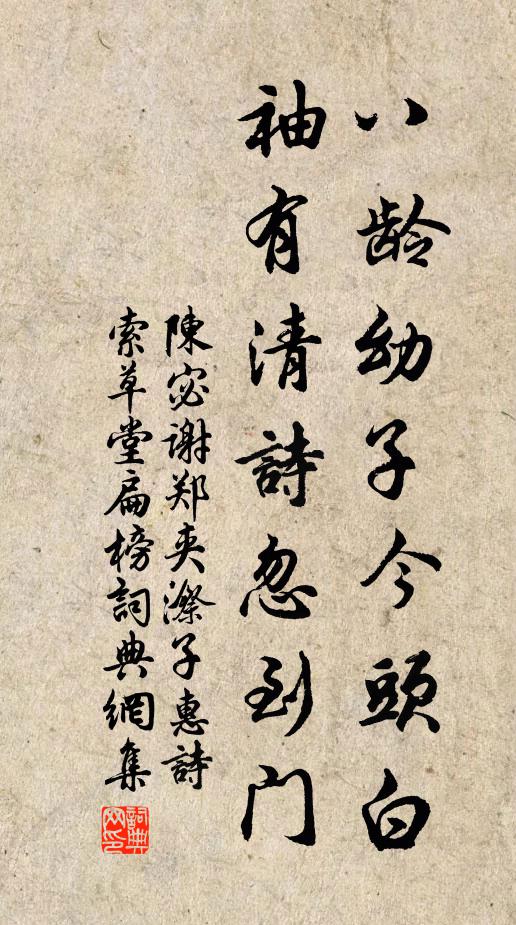 八龄幼子今頭白
袖有清詩忽到门
陳宓谢郑夹漈子惠詩
索草堂扁榜詞典網集
詞典网印